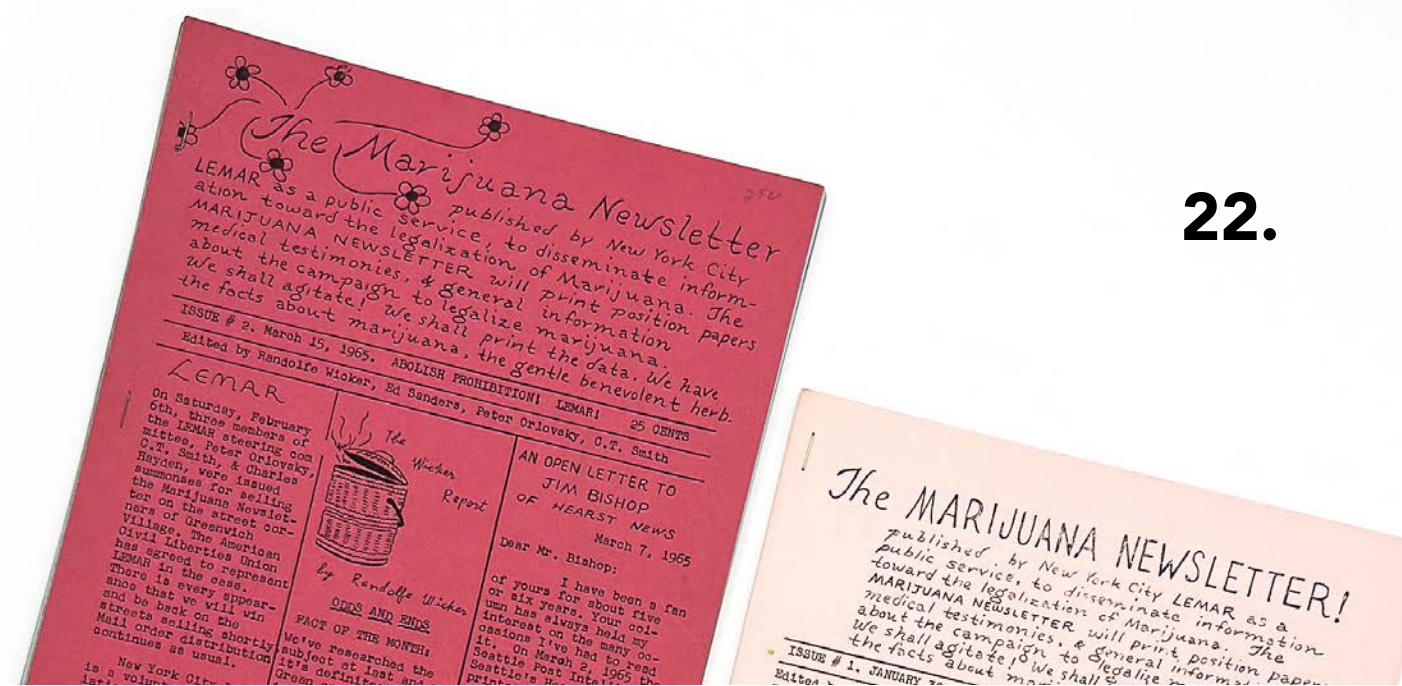 The Marijuana Newsletter
25¢
published by New York City
LEMAR as a public service, to disseminate inform-
ation toward the legalization of Marijuana. The
MARIJUANA NEWSLETTER will print position papers
medical testimonies, & general information
about the campaign to legalize marijuana.
We shall agitate! We shall print the data. We have
the facts about marijuana, the gentle benevolent herb.
ISSUE # 2. March 15, 1965. ABOLISH PROHIBITION! LEMAR! 25 CENTS
Edited by Randolfe Wicker, Ed Sanders, Peter Orlovsky, C.T. Smith
LEMAR
On Saturday, February
6th, three members of
the LEMAR steering com
mittee, Peter Orlovsky,
C.T. Smith, & Charles
Hayden, were issued
summonses for selling
the Marijuana Newslet-
ter on the street cor-
ners of Greenwich
Village. The American
Civil Liberties Union
has agreed to represent
LEMAR in the case.
There is every appear-
ance that we will win
and be back on the
streets selling shortly
Mail order distribution
continues as usual.
New York City
is a volunt
The
Wicker
Report
by Randolfe Wicker
ODDS AND ENDS
FACT OF THE MONTH:
We've researched the
subject at last and
it's definite
Green
AN OPEN LETTER TO
JIM BISHOP
OF HEARST NEWS
March 7, 1965
Dear Mr. Bishop:
I have been a fan
of yours for about five
or six years. Your col-
umn has always held my
interest on the many oc-
casions I've had to read
it. On March 2, 1965 the
Seattle Post Intel
Seattle's He
printe
22.
The MARIJUANA NEWSLETTER!
published by New York City LEMAR as a
public service, to disseminate information
toward the legalization of Marijuana. The
MARIJUANA NEWSLETTER will print position papers
medical testimonies, & general informati
about the campaign to legalize mar
We shall agitate! We shall
the facts about mari
ISSUE # 1. JANUARY 30
Edited b